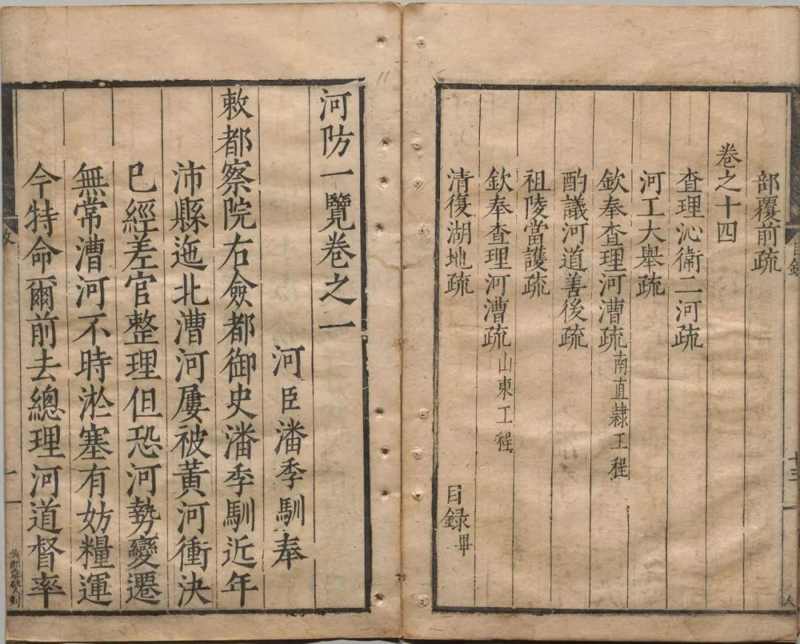 部覆前疏
卷之十四
查理沁衛二河疏
河工大舉疏
欽奉查理河漕疏南直隸工程
酌議河道善後疏
祖陵當護疏
欽奉查理河漕疏山東工程
清復湖地疏
目錄畢
河防一覽卷之一
河臣潘季馴奉
敕都察院右僉都御史潘季馴近年
沛縣迤北漕河屢被黃河衝決
已經差官整理但恐河勢變遷
無常漕河不時淤塞有妨糧運
今特命爾前去總理河道督率